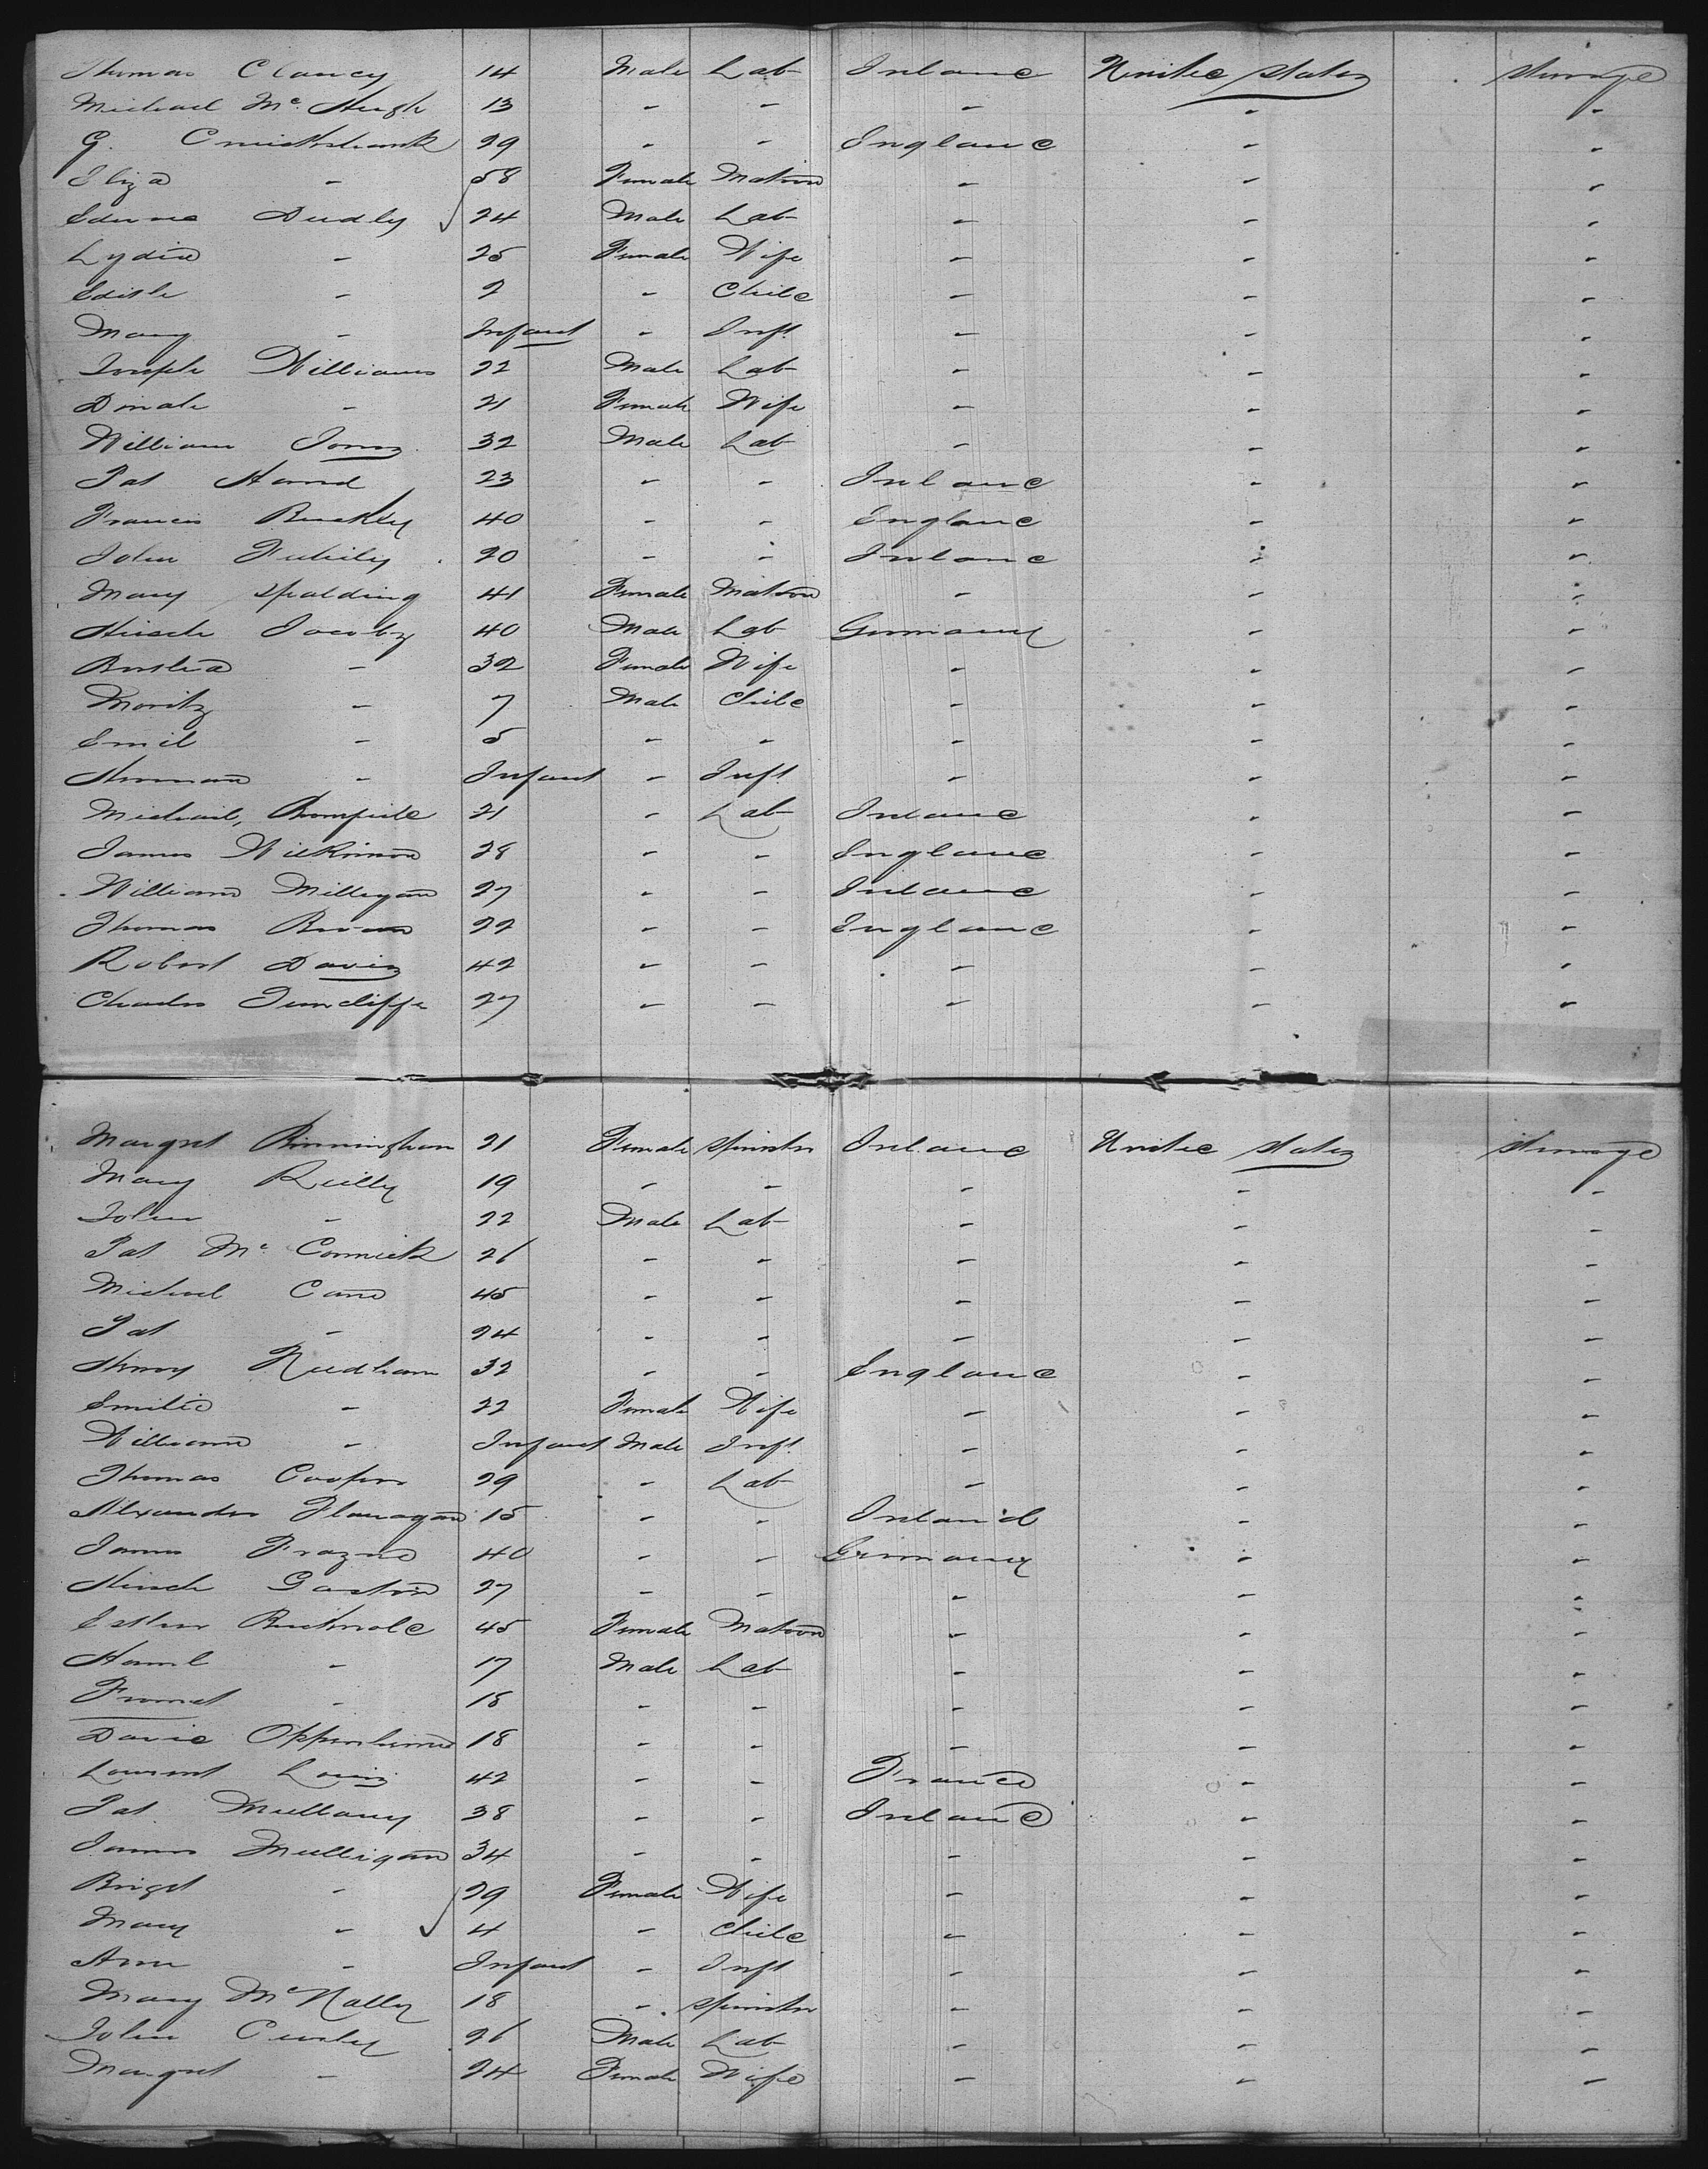 Thomas Clancy 14 Male Lab Ireland United States Steerage
Michael Mc Hugh 13 - - - - -
G. Cruickshank 29 - - England - -
Eliza - 58 Female Matron - - -
Edward Dudly 24 Male Lab - - -
Lydia - 25 Female Wife - - -
Edith - 2 - Child - - -
Mary - Infant - Inft. - - -
Joseph Williams 22 Male Lab - - -
Dinah - 21 Female Wife - - -
William Jones 32 Male Lab - - -
Pat Hand 23 - - Ireland - -
Francis Buckley 40 - - England - -
John 20 - - Ireland - -
Mary Spalding 41 Female Matron - - -
Hirsch Jacoby 40 Male Lab Germany - -
- 32 Female Wife - - -
Moritz - 7 Male Child - - -
Emil - 5 - - - - -
Herman - Infant - Inft - - -
Michael 21 - Lab Ireland - -
James Wilkinson 28 - - England - -
William Milligan 27 - - Ireland - -
Thomas Brown 22 - - England - -
Robert Davis 42 - - - - -
Charles Juncliffe 27 - - - - -
Margret Birmingham 21 Female Spinster Ireland United States Steerage
Mary Reilly 19 - - - - -
John - 22 Male Lab - - -
Pat Mc Cormick 26 - - - - -
Michael Cane 45 - - - - -
Pat - 24 - - - - -
Henry Needham 32 - - England - -
Emilie - 22 Female Wife - - -
William - Infant Male Inft. - - -
Thomas Cooper 29 - Lab - - -
Alexander Flanagan 15 - - Ireland - -
James 40 - - Germany - -
Hirsch Gaston 27 - - - - -
Esther 45 Female Matron - - -
- 17 Male Lab - - -
Fromet - 18 - - - - -
David Oppenheimer 18 - - - - -
Laurent Louis 42 - - France - -
Pat Mullany 38 - - Ireland - -
James Mulligan 34 - - - - -
Briget - 29 Female Wife - - -
Mary - 4 - Child - - -
Ann - Infant - Inft - - -
Mary McNally 18 - Spinster - - -
John Curley 26 Male Lab - - -
Margret - 24 Female Wife - - -